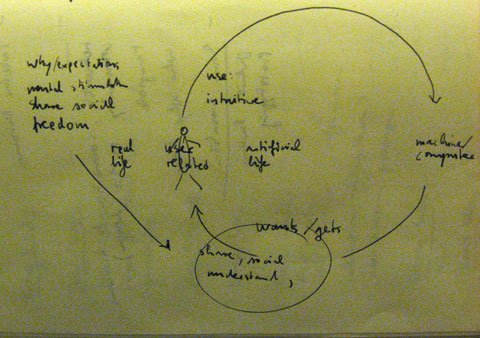 why/expectations
mental stimulation
share social
freedom
use:
intuitive
real
life
user
related
artificial
life
machine/
computer
wants/gets
share, social
understand,